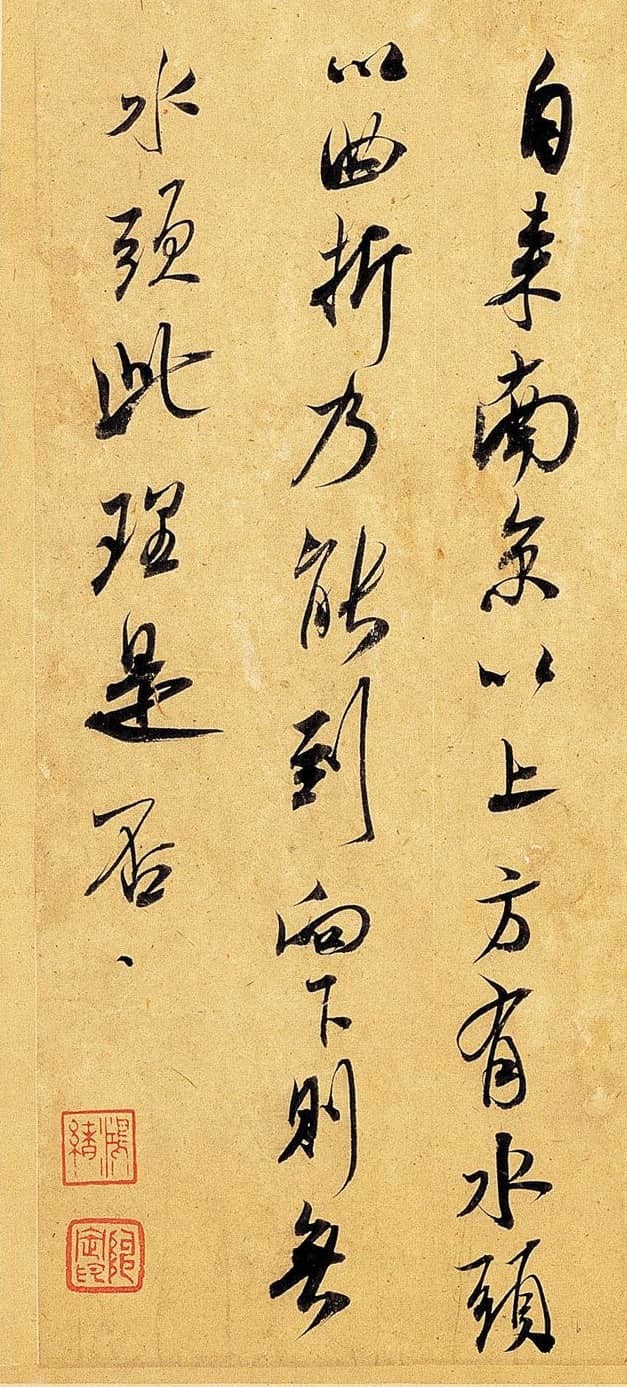 自来南京以上方有水頭
以曲折乃能到向下則無
水頭此理是否、